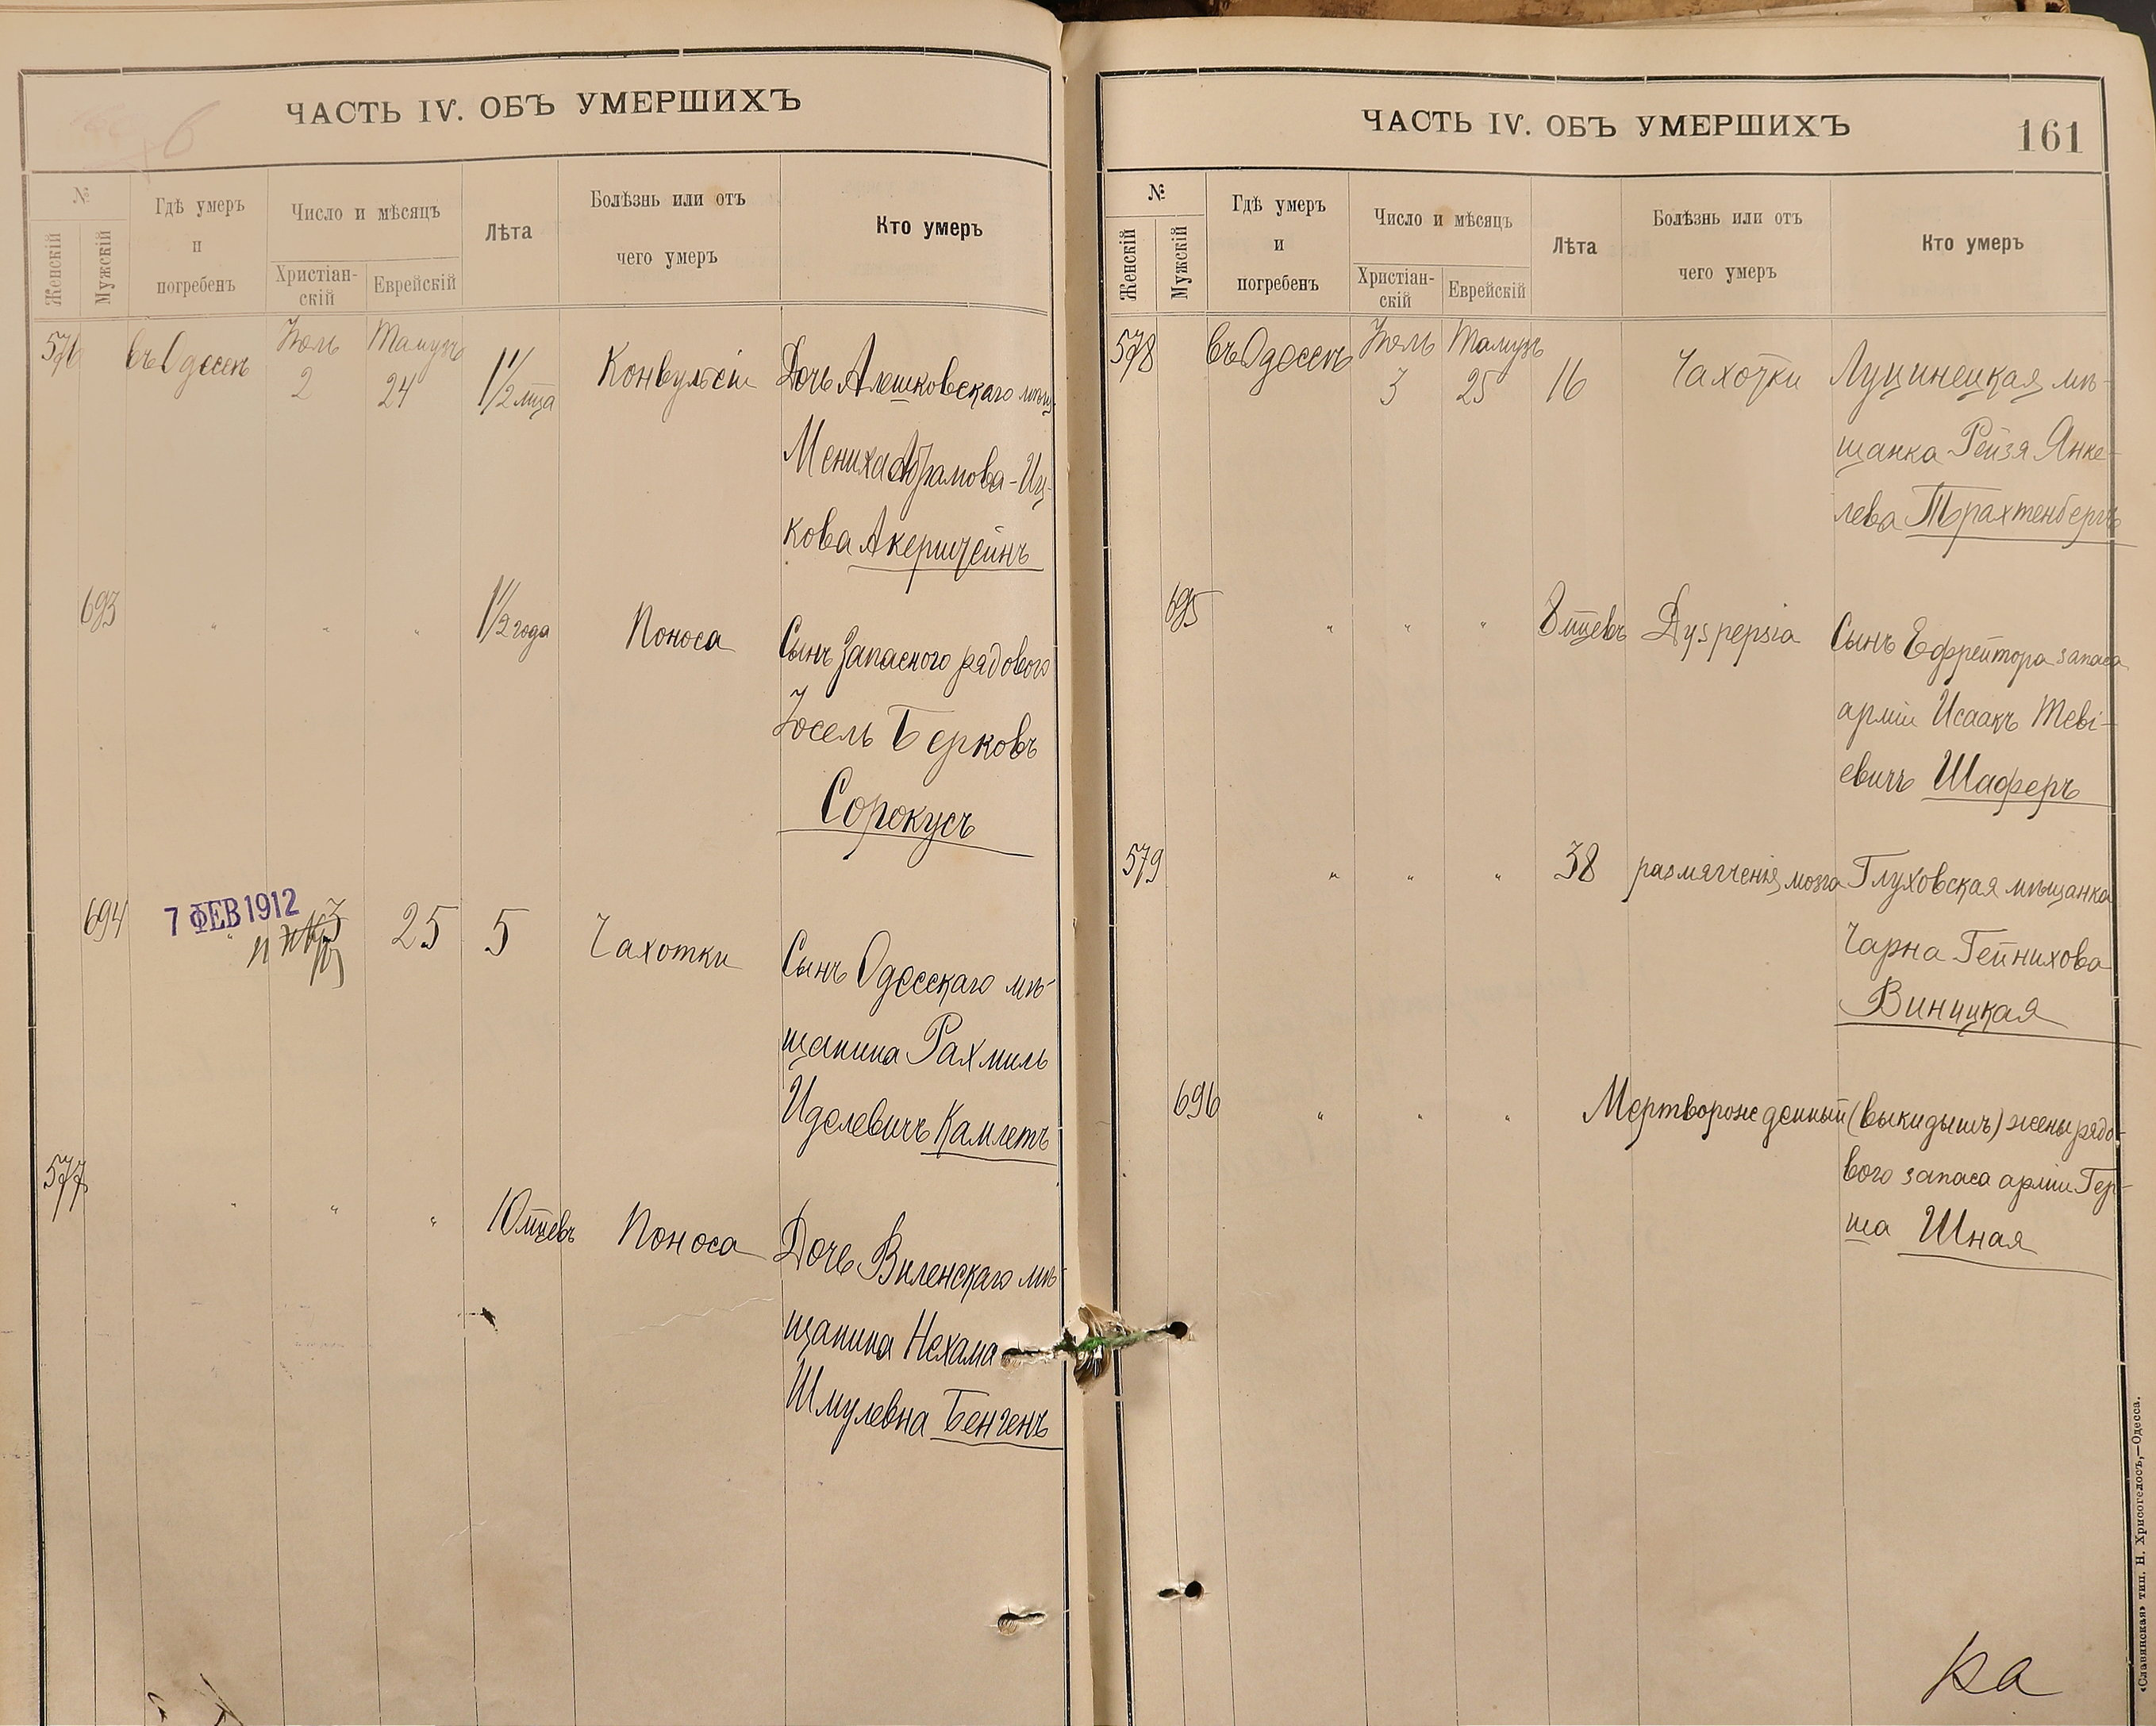 ЧАСТЬ IV. ОБЪ УМЕРШИХЪ
№
Женскій
Мужскій
Гдѣ умеръ
и
погребенъ
Число и мѣсяцъ
Христіан-
скій
Еврейскій
Лѣта
Болѣзнь или отъ
чего умеръ
Кто умеръ
576 въ Одессѣ Іюль 2 Тамузъ 24 1 1/2 мца Конвульсіи Дочь Алешковскаго мѣщ.
Мениха Абрамова-Иц-
кова Акерштейнъ
693 " " " 1 1/2 года Поноса Сынъ Запасного рядового
Іосель Берковъ
Сорокусъ
694 " 3 25 5 Чахотки Сынъ Одесскаго мѣ-
щанина Рахмиль
Иделевичъ Камлетъ
7 ФЕВ 1912
577 " " " 10 мцевъ Поноса Дочь Виленскаго мѣ-
щанина Нехама
Шмулевна Бенгенъ
ЧАСТЬ IV. ОБЪ УМЕРШИХЪ
161
№
Женскій
Мужскій
Гдѣ умеръ
и
погребенъ
Число и мѣсяцъ
Христіан-
скій
Еврейскій
Лѣта
Болѣзнь или отъ
чего умеръ
Кто умеръ
578 въ Одессѣ Іюль 3 Тамузъ 25 16 Чахотки Лучинецкая мѣ-
щанка Рейзя Янке-
лева Трахтенбергъ
695 " " " 8 мцевъ Dyspepsia Сынъ Ефрейтора запаса
арміи Исаакъ Теві-
евичъ Шаферъ
579 " " " 38 размягченія мозга Глуховская мѣщанка
Чарна Гейнихова
Виницкая
696 " " " Мертворожденный (выкидышъ) жены рядо-
вого запаса арміи Гер-
ша Шная
«Славянская» тип. Н. Хрисогелосъ,—Одесса.